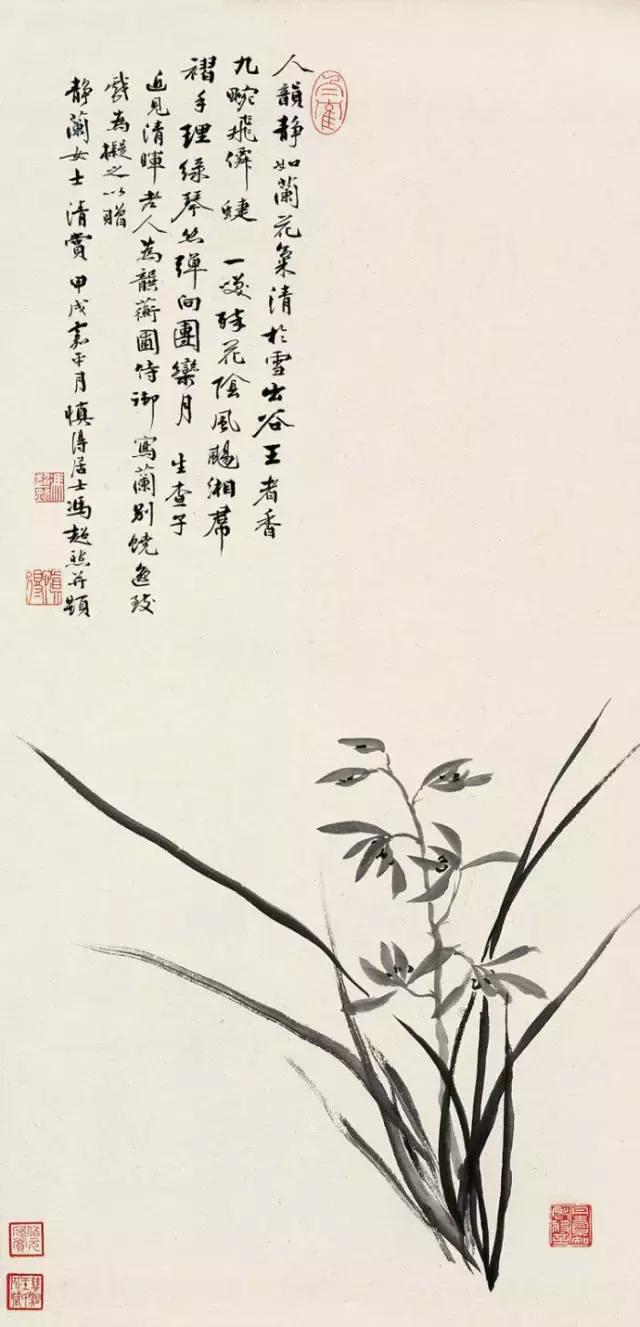 人韻静如蘭花氣清於雪出谷王者香
九畹飛僊蜨 一花陰風颺湘帬
褶手理綠琴絲彈向團欒月 生查子
近見清暉老人為蘅圃侍御寫蘭別饒逸致
戲為擬之以贈
静蘭女士清賞 甲戌嘉平月慎得居士馮超然并題